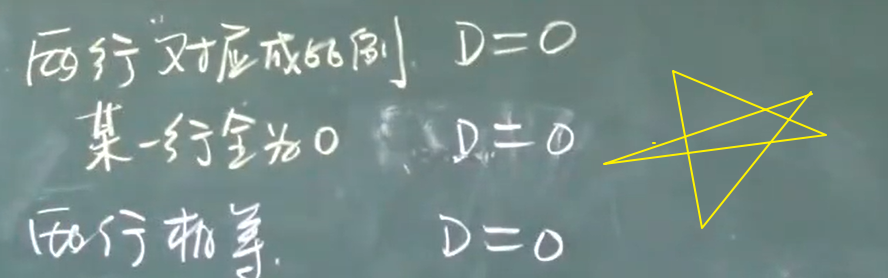 两行对应成比例 D=0
某一行全为0 D=0
两行相等. D=0